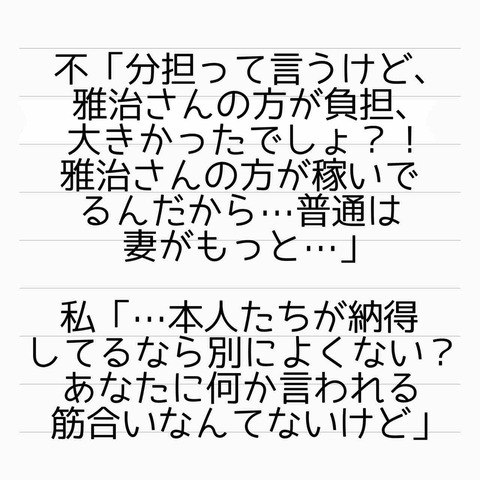 不「分担って言うけど、
雅治さんの方が負担、
大きかったでしょ？！
雅治さんの方が稼いで
るんだから…普通は
妻がもっと…」
私「…本人たちが納得
してるなら別によくない？
あなたに何か言われる
筋合いなんてないけど」